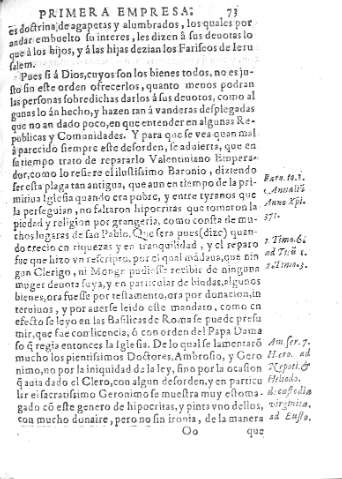 PRIMERA EMPRESA. 73
es doctrina de agapetas y alumbrados, los quales por
andar embuelto su interes, les dizen à sus deuotas lo
que à los hijos, y à las hijas dezian los Fariseos de Ieru
salem.
Pues si à Dios, cuyos son los bienes todos, no es ju-
sto sin este orden ofrecerlos, quanto menos podran
las personas sobredichas darlos à sus deuotos, como al
gunas lo àn hecho, y hazen tan à vanderas desplegadas
que no an dado poco, en que entender en algunas Re-
publicas y Comunidades. Y para que se vea quan mal
à parecido siempre este desorden, se aduierta, que en
su tiempo trato de repararlo Valentiniano Empera-
dor, como lo refiere el ilustissimo Baronio, diziendo
ser esta plaga tan antigua, que aun en tiempo de la pri-
mitiua Iglesia quando era pobre, y entre tyranos que
la perseguian, no faltaron hipocritas que tomaron la
piedad y religion por grangeria, como consta de mu-
chos lugares de san Pablo. Que sera pues (dize) quan-
do crecio en riquezas y en tranquilidad, y el reparo
fue que hizo vn rescripto, por el qual mãdaua, que nin
gun Clerigo, ni Monge pudiesse recibir de ninguna
muger deuota suya, y en particular de biudas, algunos
bienes, ora fuesse por testamento, ora por donacion, in
teruiuos, y por auerse leido este mandato, como en
efecto se leyo en las Basilicas de Roma se puede presu
mir, que fue con licencia, ò con orden del Papa Dama
so q̃ regia entonces la Iglesia. De lo qual se lamentarõ
mucho los pientissimos Doctores, Ambrosio, y Gero
nimo, no por la iniquidad de la ley, sino por la ocasion
q̃ auia dado el Clero, con algun desorden, y en particu
lar el sacratissimo Geronimo se muestra muy estoma-
gado cõ este genero de hipocritas, y pinta vno dellos,
con mucho dunaire, pero no sin ironia, de la manera
Oo que
Baro. to. 3.
Annaliũ
Anno Xpi.
371.
1. Timo. 6.
ad Titũ 1.
2. Timo. 3.
Am ser. 7.
Hero. ad
Nepoti. &
Heliodo.
de custodia
virginita.
ad Eusto.